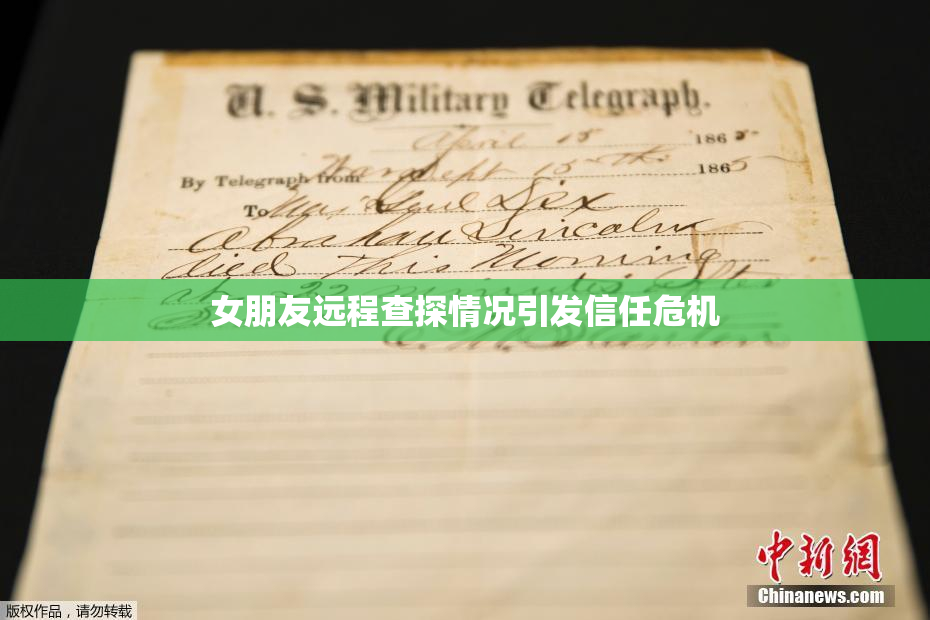 U. S. Military Telegraph.
April 15 1865
By Telegraph from War Dept 15th 1865
To Maj Genl Dix
Abraham Lincoln
died This Morning
at 22 minutes after
女朋友远程查探情况引发信任危机
中新网
Chinanews.com
版权作品，请勿转载